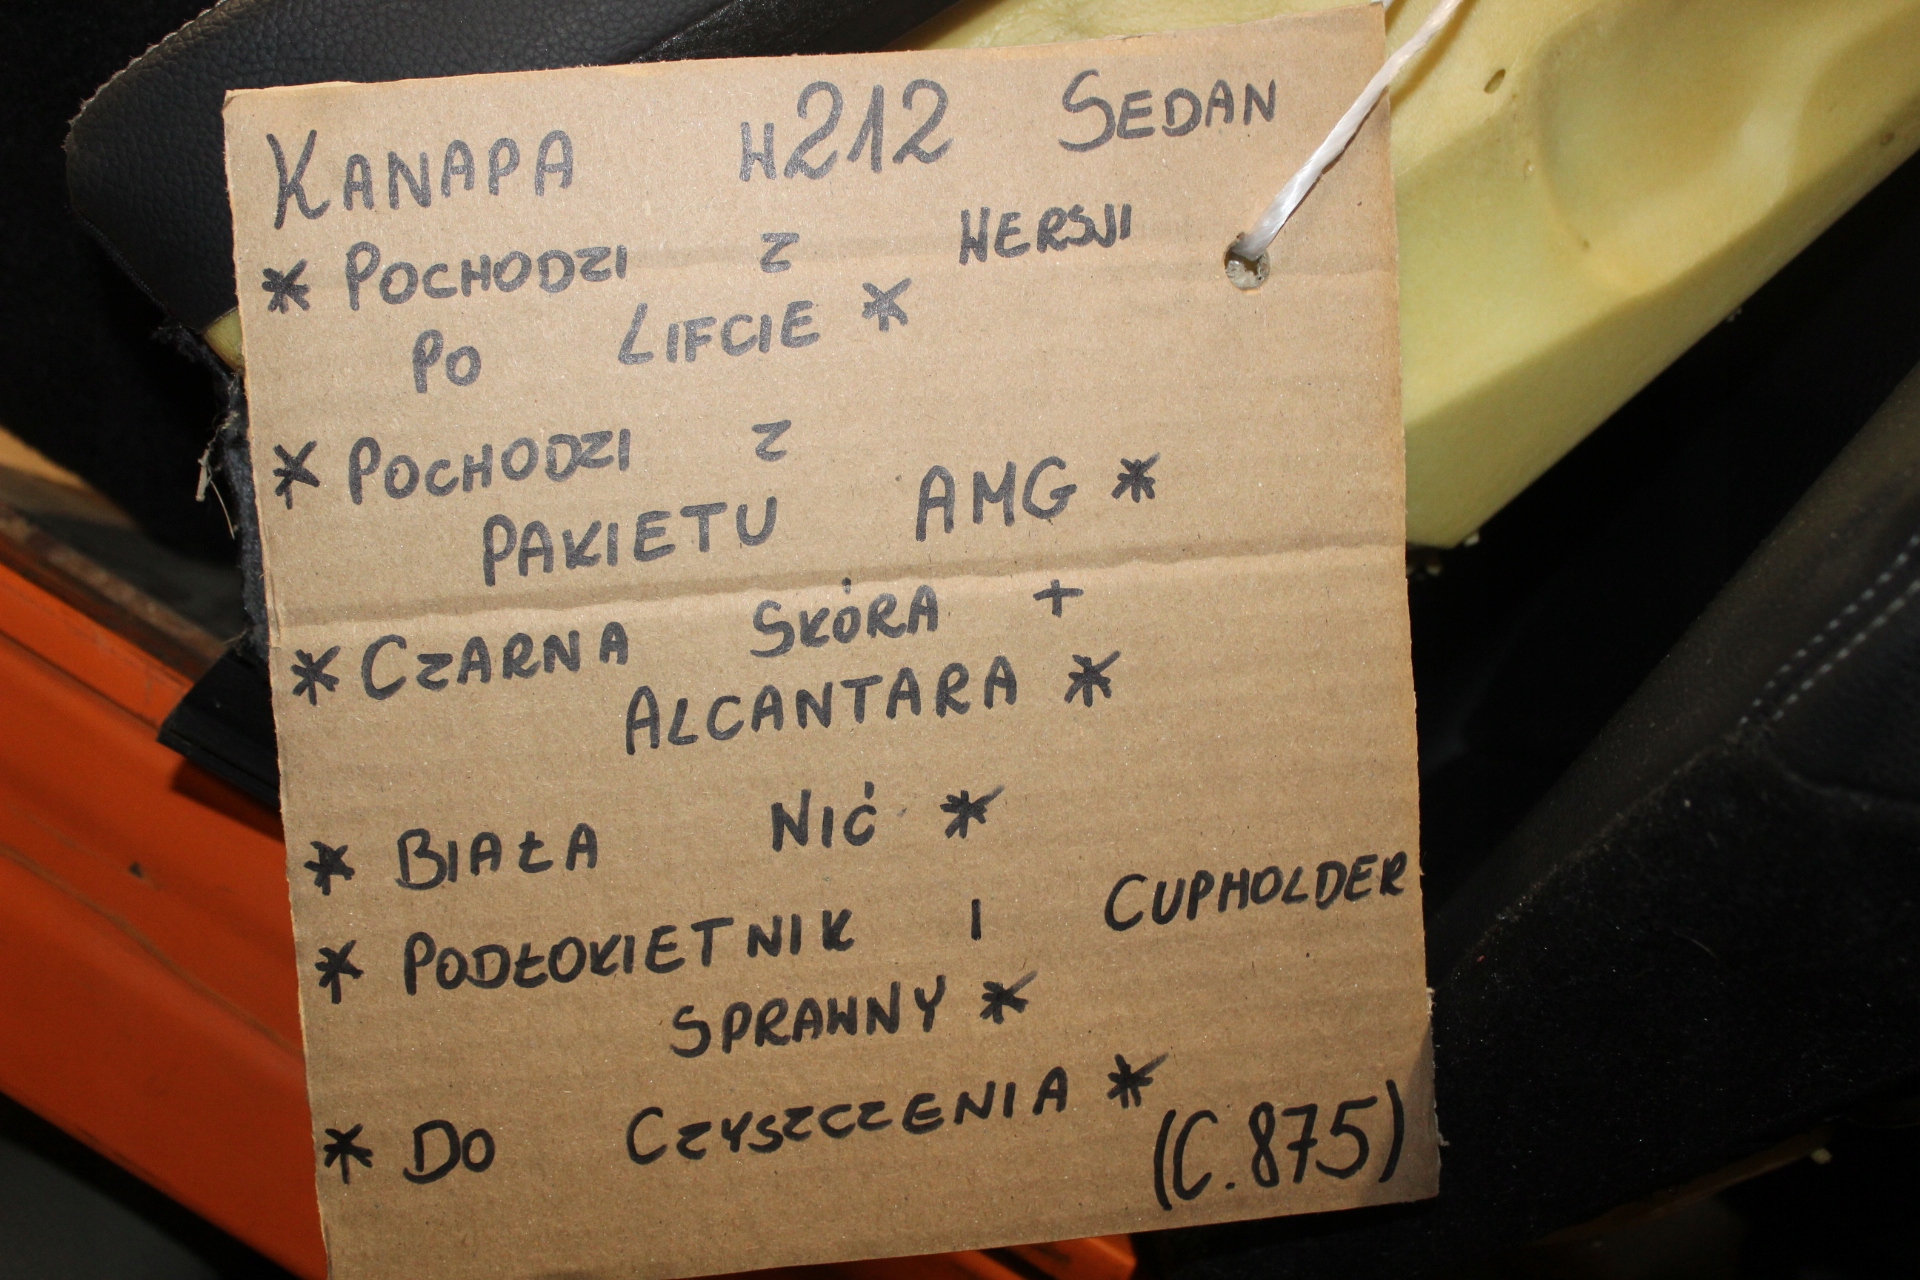 KANAPA W212 SEDAN
* POCHODZI Z WERSJI
PO LIFCIE *
* POCHODZI Z
PAKIETU AMG *
* CZARNA SKÓRA +
ALCANTARA *
* BIAŁA NIĆ *
* PODŁOKIETNIK I CUPHOLDER
SPRAWNY *
* DO CZYSZCZENIA *
(C.875)